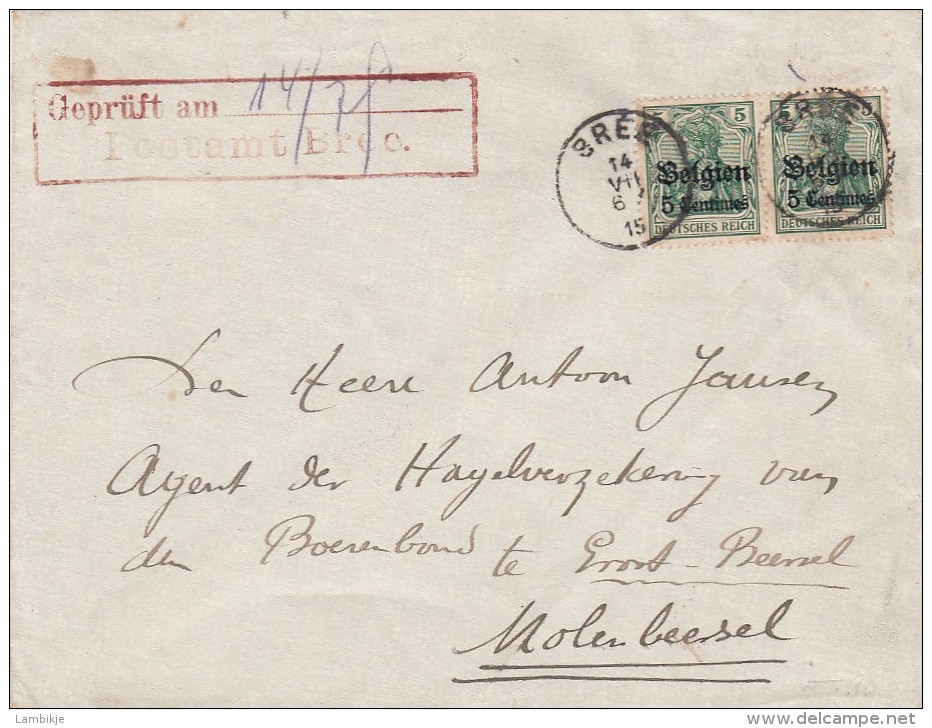 Geprüft am 14/7
Postamt Bree.
BREE
14
VII
6
15
5
Belgien
5 Centimes
DEUTSCHES REICH
5
Belgien
5 Centimes
DEUTSCHES REICH
BREE
15
Den Heere Antoon Jansen
Agent der Hagelverzekering van
den Boerenbond te Groot-Beersel
Molenbeersel
Lambikje
delcampe.net